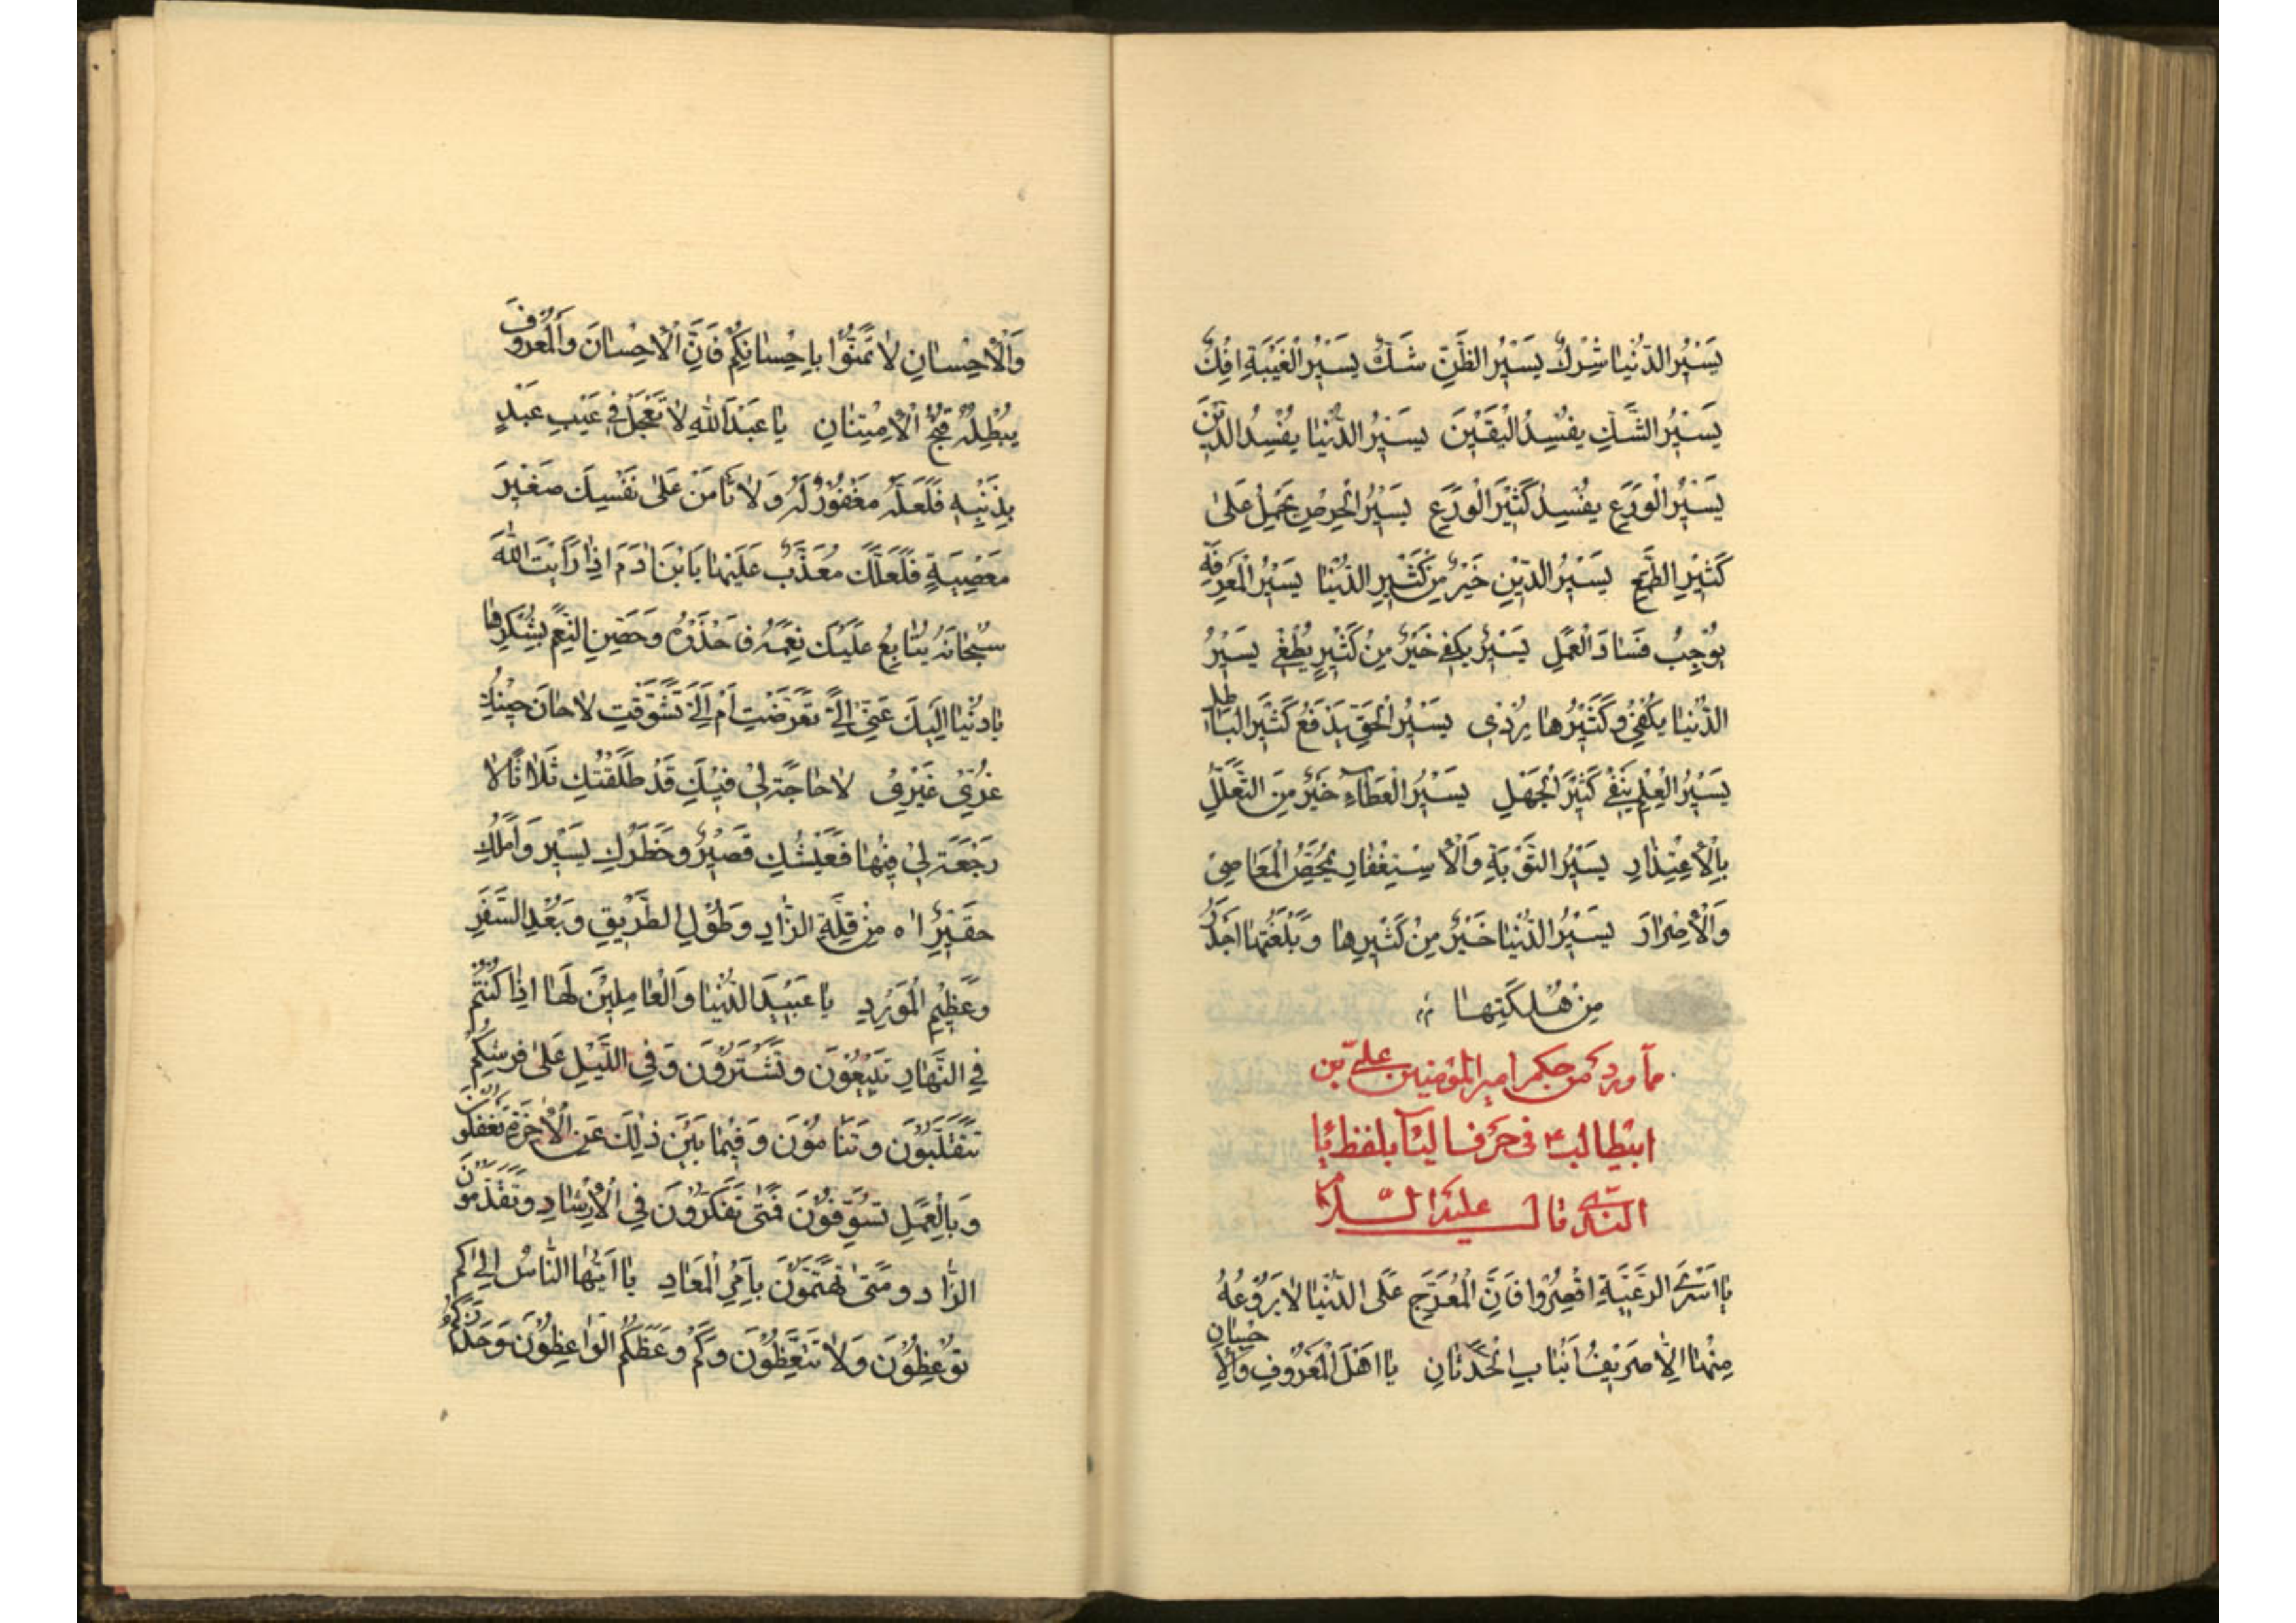 يَسيرُ الدُّنْيا شِرْكٌ يَسيرُ الظَّنِّ شَكٌّ يَسيرُ الْغَيْبَةِ اِفْكٌ
يَسيرُ الشَّكِّ يُفْسِدُ الْيَقينَ يَسيرُ الدُّنْيا يُفْسِدُ الدّينَ
يَسيرُ الْوَرَعِ يُفْسِدُ كَثيرَ الْوَرَعِ يَسيرُ الْحِرْصِ يَحْمِلُ عَلى
كَثيرِ الطَّمَعِ يَسيرُ الدّينِ خَيْرٌ مِنْ كَثيرِ الدُّنْيا يَسيرُ الْمَعْرِفَةِ
يُوجِبُ فَسادَ الْعَمَلِ يَسيرٌ يَكْفي خَيْرٌ مِنْ كَثيرٍ يُطْغي يَسيرُ
الدُّنْيا يَكْفي وَكَثيرُها يُرْدي يَسيرُ الْحَقِّ يَدْفَعُ كَثيرَ الْباطِلِ
يَسيرُ الْعِلْمِ يَنْفي كَثيرَ الْجَهْلِ يَسيرُ الْعَطاءِ خَيْرٌ مِنَ التَّعَلُّلِ
بِالْاِعْتِذارِ يَسيرُ التَّوْبَةِ وَالْاِسْتِغْفارِ يُمَحِّصُ الْمَعاصِيَ
وَالْاِصْرارَ يَسيرُ الدُّنْيا خَيْرٌ مِنْ كَثيرِها وَبُلْغَتُها اَجْدَرُ
مِنْ هَلَكَتِها
مما ورد من حكم امير المؤمنين على بن
ابيطالب ع فى حرف اليآء بلفظ يا
الندى قال عليه السلام
يا اَسْرَى الرَّغْبَةِ اقْصِرُوا فَاِنَّ الْمُعَرِّجَ عَلَى الدُّنْيا لا يَرُوعُهُ
مِنْها اِلّا صَريفُ اَنْيابِ الْحَدَثانِ يا اَهْلَ الْمَعْرُوفِ وَالْاِحْسانِ
وَالْاِحْسانِ لا تَمُنُّوا بِاِحْسانِكُمْ فَاِنَّ الْاِحْسانَ وَالْمَعْرُوفَ
يُبْطِلُهُ قُبْحُ الْاِمْتِنانِ يا عَبْدَ اللهِ لا تَعْجَلْ في عَيْبِ عَبْدٍ
بِذَنْبِهِ فَلَعَلَّهُ مَغْفُورٌ لَهُ وَلا تَأْمَنْ عَلى نَفْسِكَ صَغيرَ
مَعْصِيَةٍ فَلَعَلَّكَ مُعَذَّبٌ عَلَيْها يَا ابْنَ ادَمَ اِذا رَاَيْتَ اللهَ
سُبْحانَهُ يُتابِعُ عَلَيْكَ نِعَمَهُ فَاحْذَرْهُ وَحَصِّنِ النِّعَمَ بِشُكْرِها
يا دُنْيا اِلَيْكَ عَنّي اِلَيَّ تَعَرَّضْتِ اَمْ اِلَيَّ تَشَوَّقْتِ لا حانَ حينُكِ
غُرّي غَيْري لا حاجَةَ لي فيكِ قَدْ طَلَّقْتُكِ ثَلاثًا لا
رَجْعَةَ لي فيها فَعَيْشُكِ قَصيرٌ وَخَطَرُكِ يَسيرٌ وَاَمَلُكِ
حَقيرٌ اه مِنْ قِلَّةِ الزّادِ وَطُولِ الطَّريقِ وَبُعْدِ السَّفَرِ
وَعَظيمِ الْمَوْرِدِ يا عَبيدَ الدُّنْيا وَالْعامِلينَ لَها اِذا كُنْتُمْ
فِي النَّهارِ تَبيعُونَ وَتَشْتَرُونَ وَفِي اللَّيْلِ عَلى فُرُشِكُمْ
تَتَقَلَّبُونَ وَتَنامُونَ وَفيما بَيْنَ ذلِكَ عَنِ الْاخِرَةِ تَغْفُلُونَ
وَبِالْعَمَلِ تُسَوِّفُونَ فَمَتى تَفَكَّرُونَ فِي الْاِرْشادِ وَتُقَدِّمُونَ
الزّادَ وَمَتى تَهْتَمُّونَ بِاَمْرِ الْمَعادِ يا اَيُّهَا النّاسُ اِلى كَمْ
تُوعَظُونَ وَلا تَتَّعِظُونَ وَكَمْ وَعَظَكُمُ الْواعِظُونَ وَحَذَّرَكُمُ